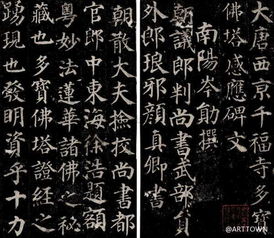 大唐西京千福寺多寶
佛塔感應碑文
南陽岑勛撰
朝議郎判尚書武部員
外郎琅邪顏真卿書
朝散大夫撿校尚書都
官郎中東海徐浩題額
粵妙法蓮華諸佛之秘
藏也多寶佛塔證經之
踴現也發明資乎十力
@ARTTOWN